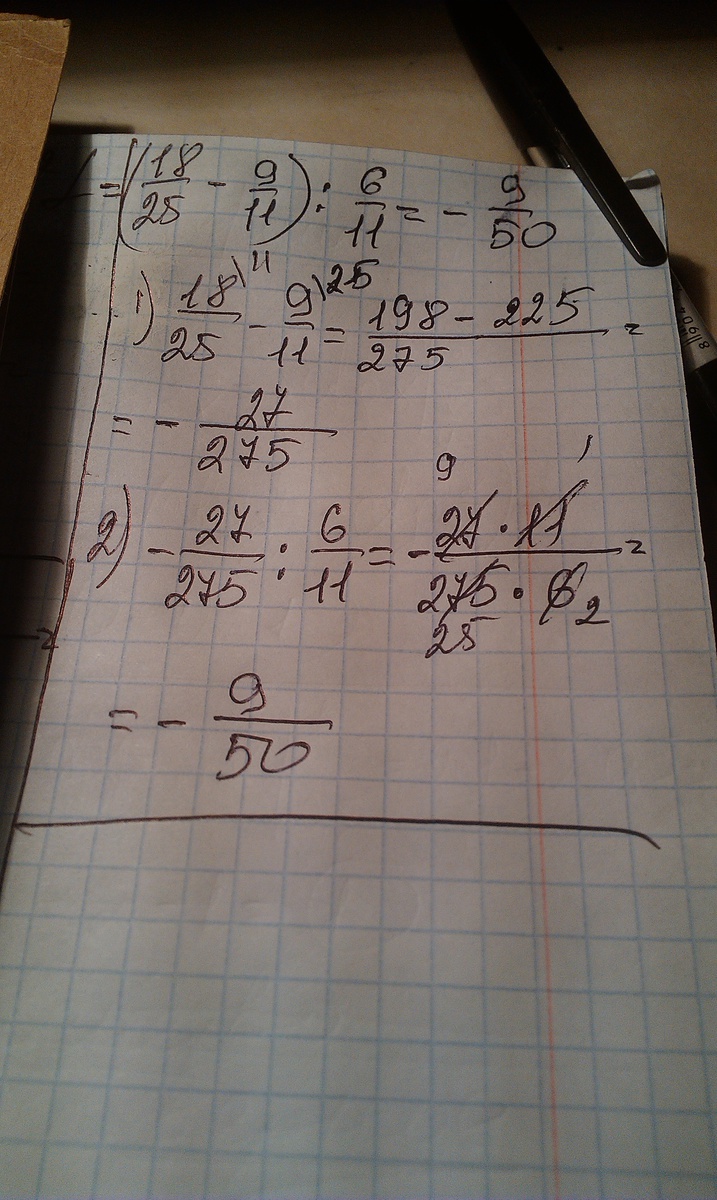 =(18/25 - 9/11) : 6/11 = - 9/50
1) 18\11/25 - 9\25/11 = 198 - 225/275 =
= - 27/275
2) - 27/275 : 6/11 = - 27 · 11/275 · 6 =
9 1
25 2
= - 9/50